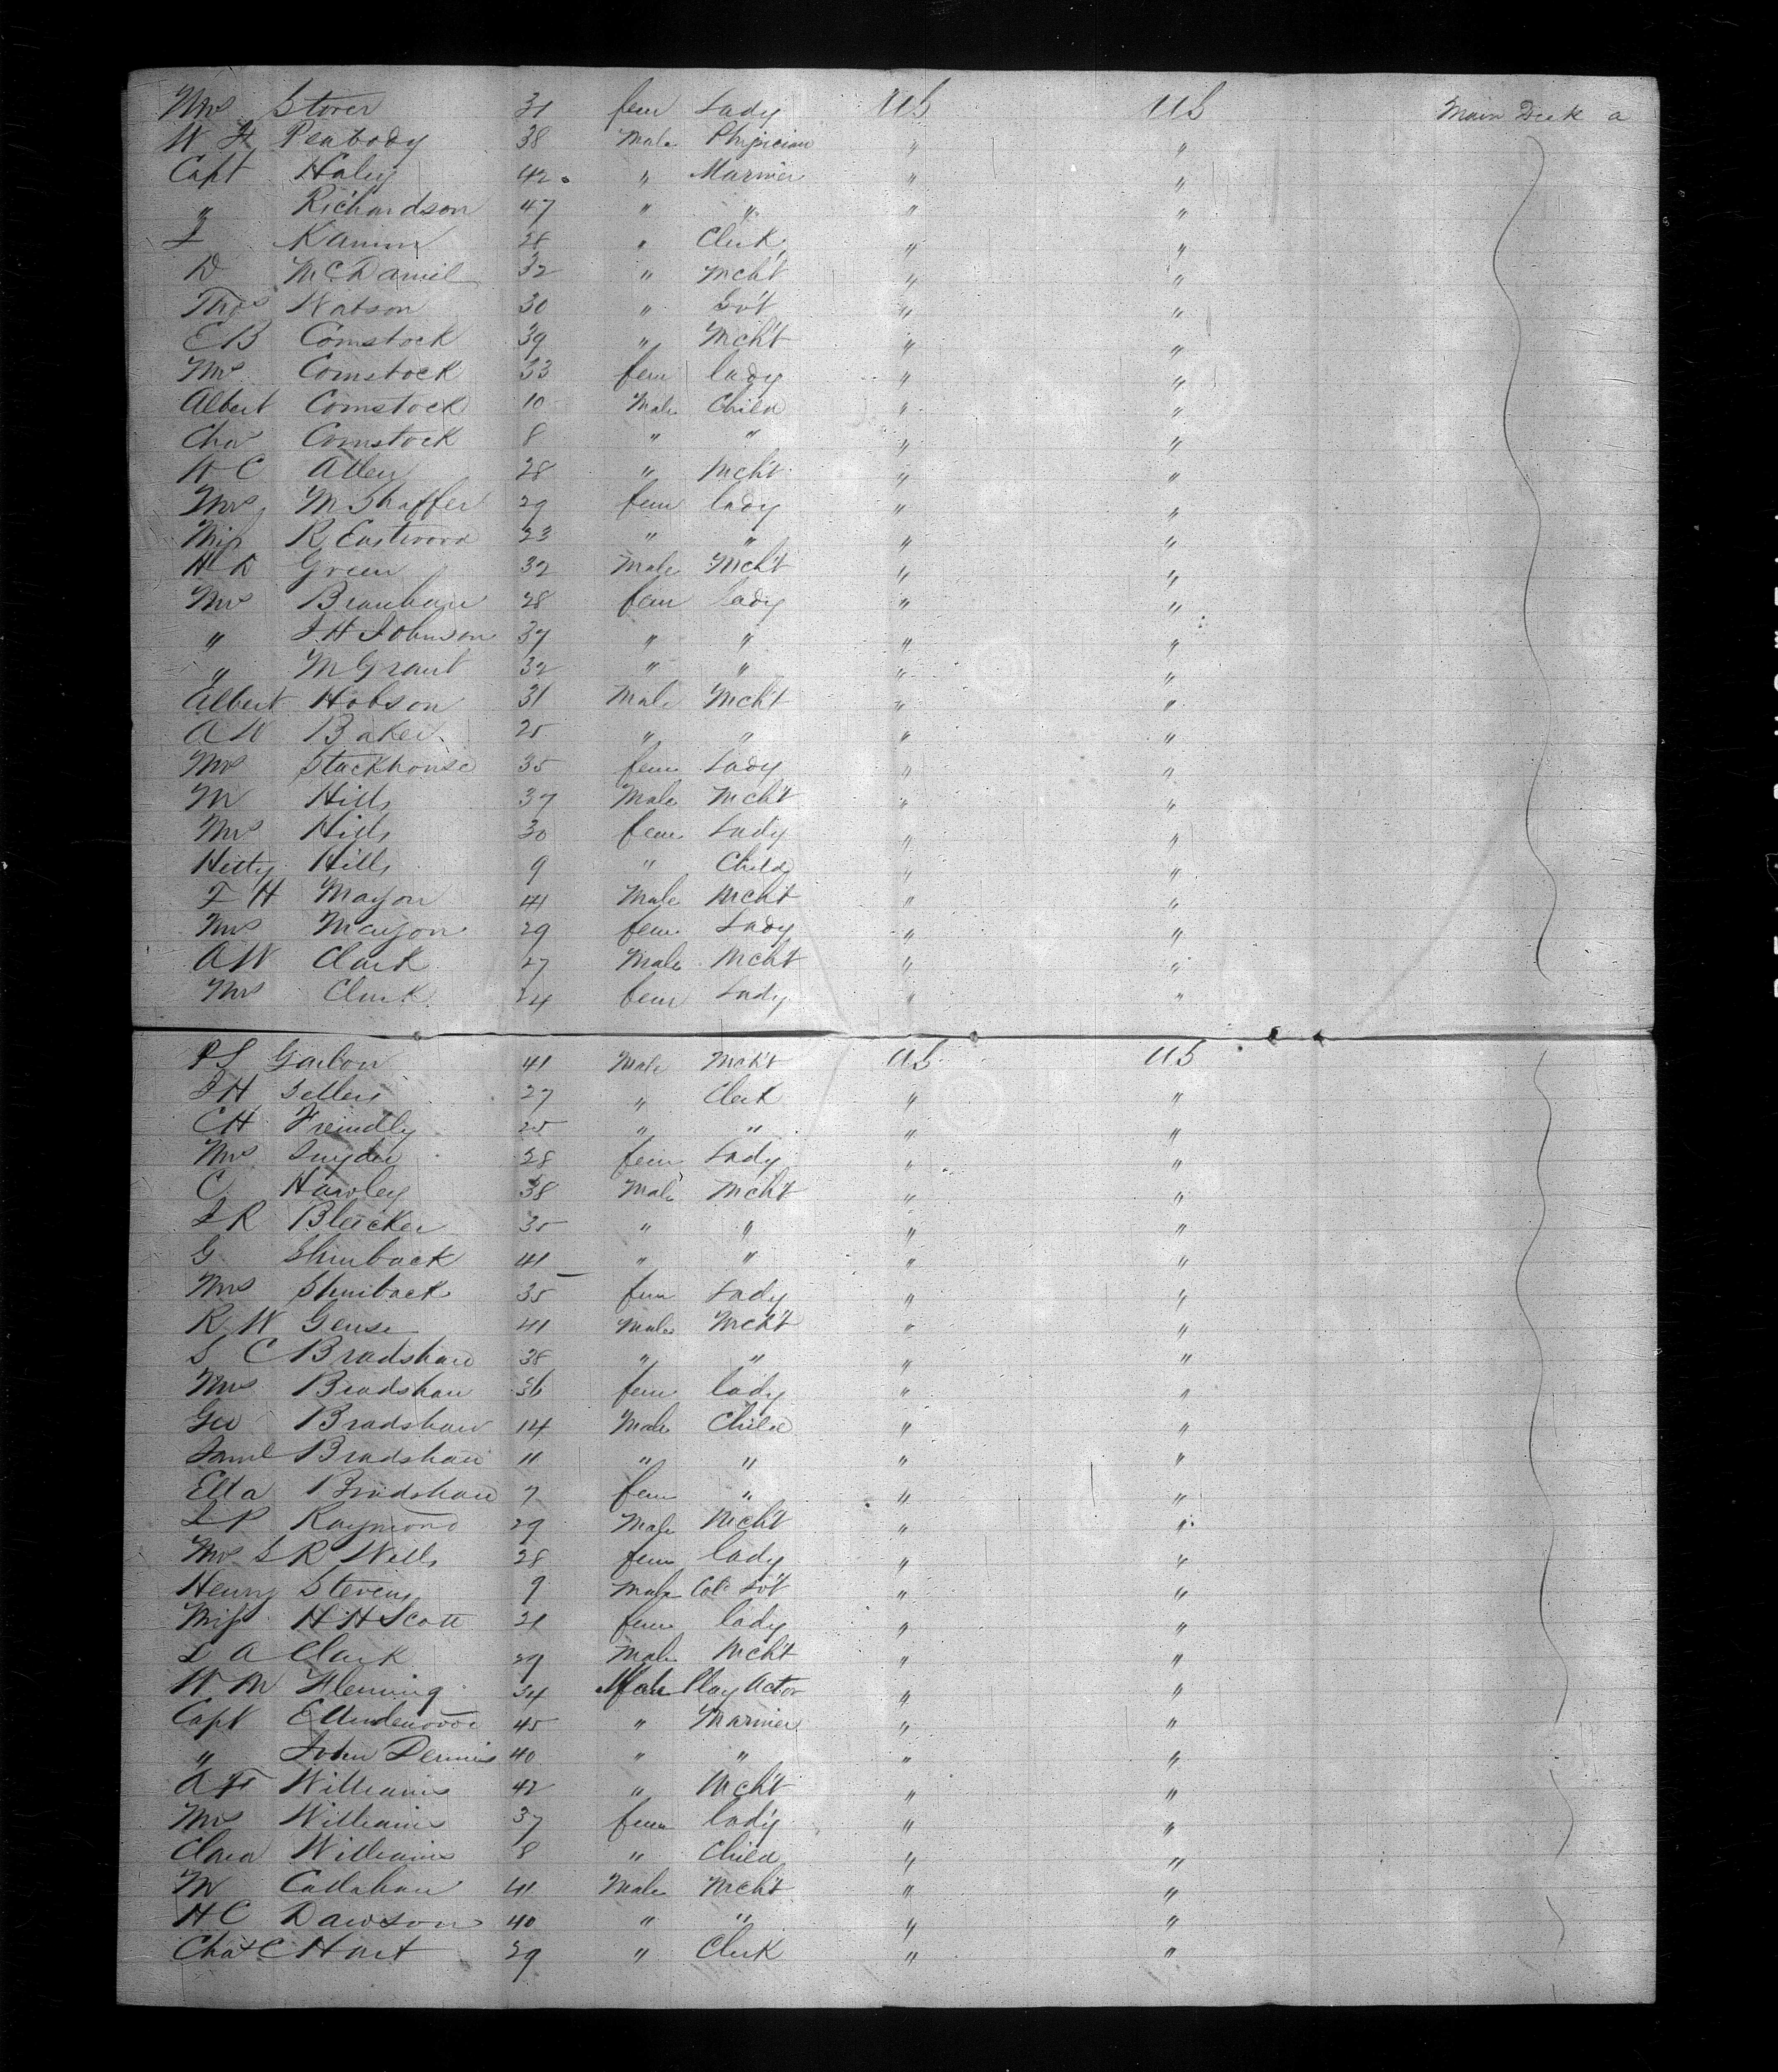 Mrs Storer 31 fem Lady US US Main Deck a
W H Peabody 38 Male Physician " "
Capt Haley 42 " Mariner " "
" Richardson 47 " " " "
28 " Clerk " "
D McDaniel 32 " Mcht " "
Thos Watson 30 " Svt " "
E B Comstock 39 " Mcht " "
Mrs Comstock 33 fem lady " "
Albert Comstock 10 Male Child " "
Chas Comstock 8 " " " "
W C Allen 28 " Mcht " "
Mrs M Shaffer 29 fem lady " "
Miss R Eastwood 23 " " " "
H D Green 32 Male Mcht " "
Mrs Branham 28 fem lady " "
" J H Johnson 37 " " " "
" M Grant 32 " " " "
Albert Hobson 31 Male Mcht " "
A W Baker 25 " " " "
Mrs Stackhouse 35 fem Lady " "
M Hills 37 Male Mcht " "
Mrs Hills 30 fem Lady " "
Hetty Hills 9 " Child " "
F H Mayon 41 Male Mcht " "
Mrs Mayon 29 fem Lady " "
A W Clark 27 Male Mcht " "
Mrs Clark 24 fem Lady " "
41 Male Mcht US US
J H Sellers 27 " Clerk " "
C H Freindly 25 " " " "
Mrs Snyder 28 fem Lady " "
C Hawley 38 Male Mcht " "
J R Bleecker 35 " " " "
G Shinback 41 " " " "
Mrs Shinback 35 fem Lady " "
R W Gense 41 Male Mcht " "
S C Bradshaw 38 " " " "
Mrs Bradshaw 36 fem lady " "
Geo Bradshaw 14 Male Child " "
Saml Bradshaw 11 " " " "
Etta Bradshaw 7 fem " " "
L P Raymond 29 Male Mcht " "
Mrs S R Wells 28 fem lady " "
Henry Stevens 9 Male Col Svt " "
Miss H H Scott 21 fem lady " "
L A Clark 29 Male Mcht " "
W M Fleming 34 Male Play Actor " "
Capt E Underwood 45 " Mariner " "
" John Dennis 40 " " " "
A F Williams 42 " Mcht " "
Mrs Williams 37 fem lady " "
Clara Williams 8 " Child " "
M Callahan 41 Male Mcht " "
H C Dawson 40 " " " "
Chas C Hart 29 " Clerk " "